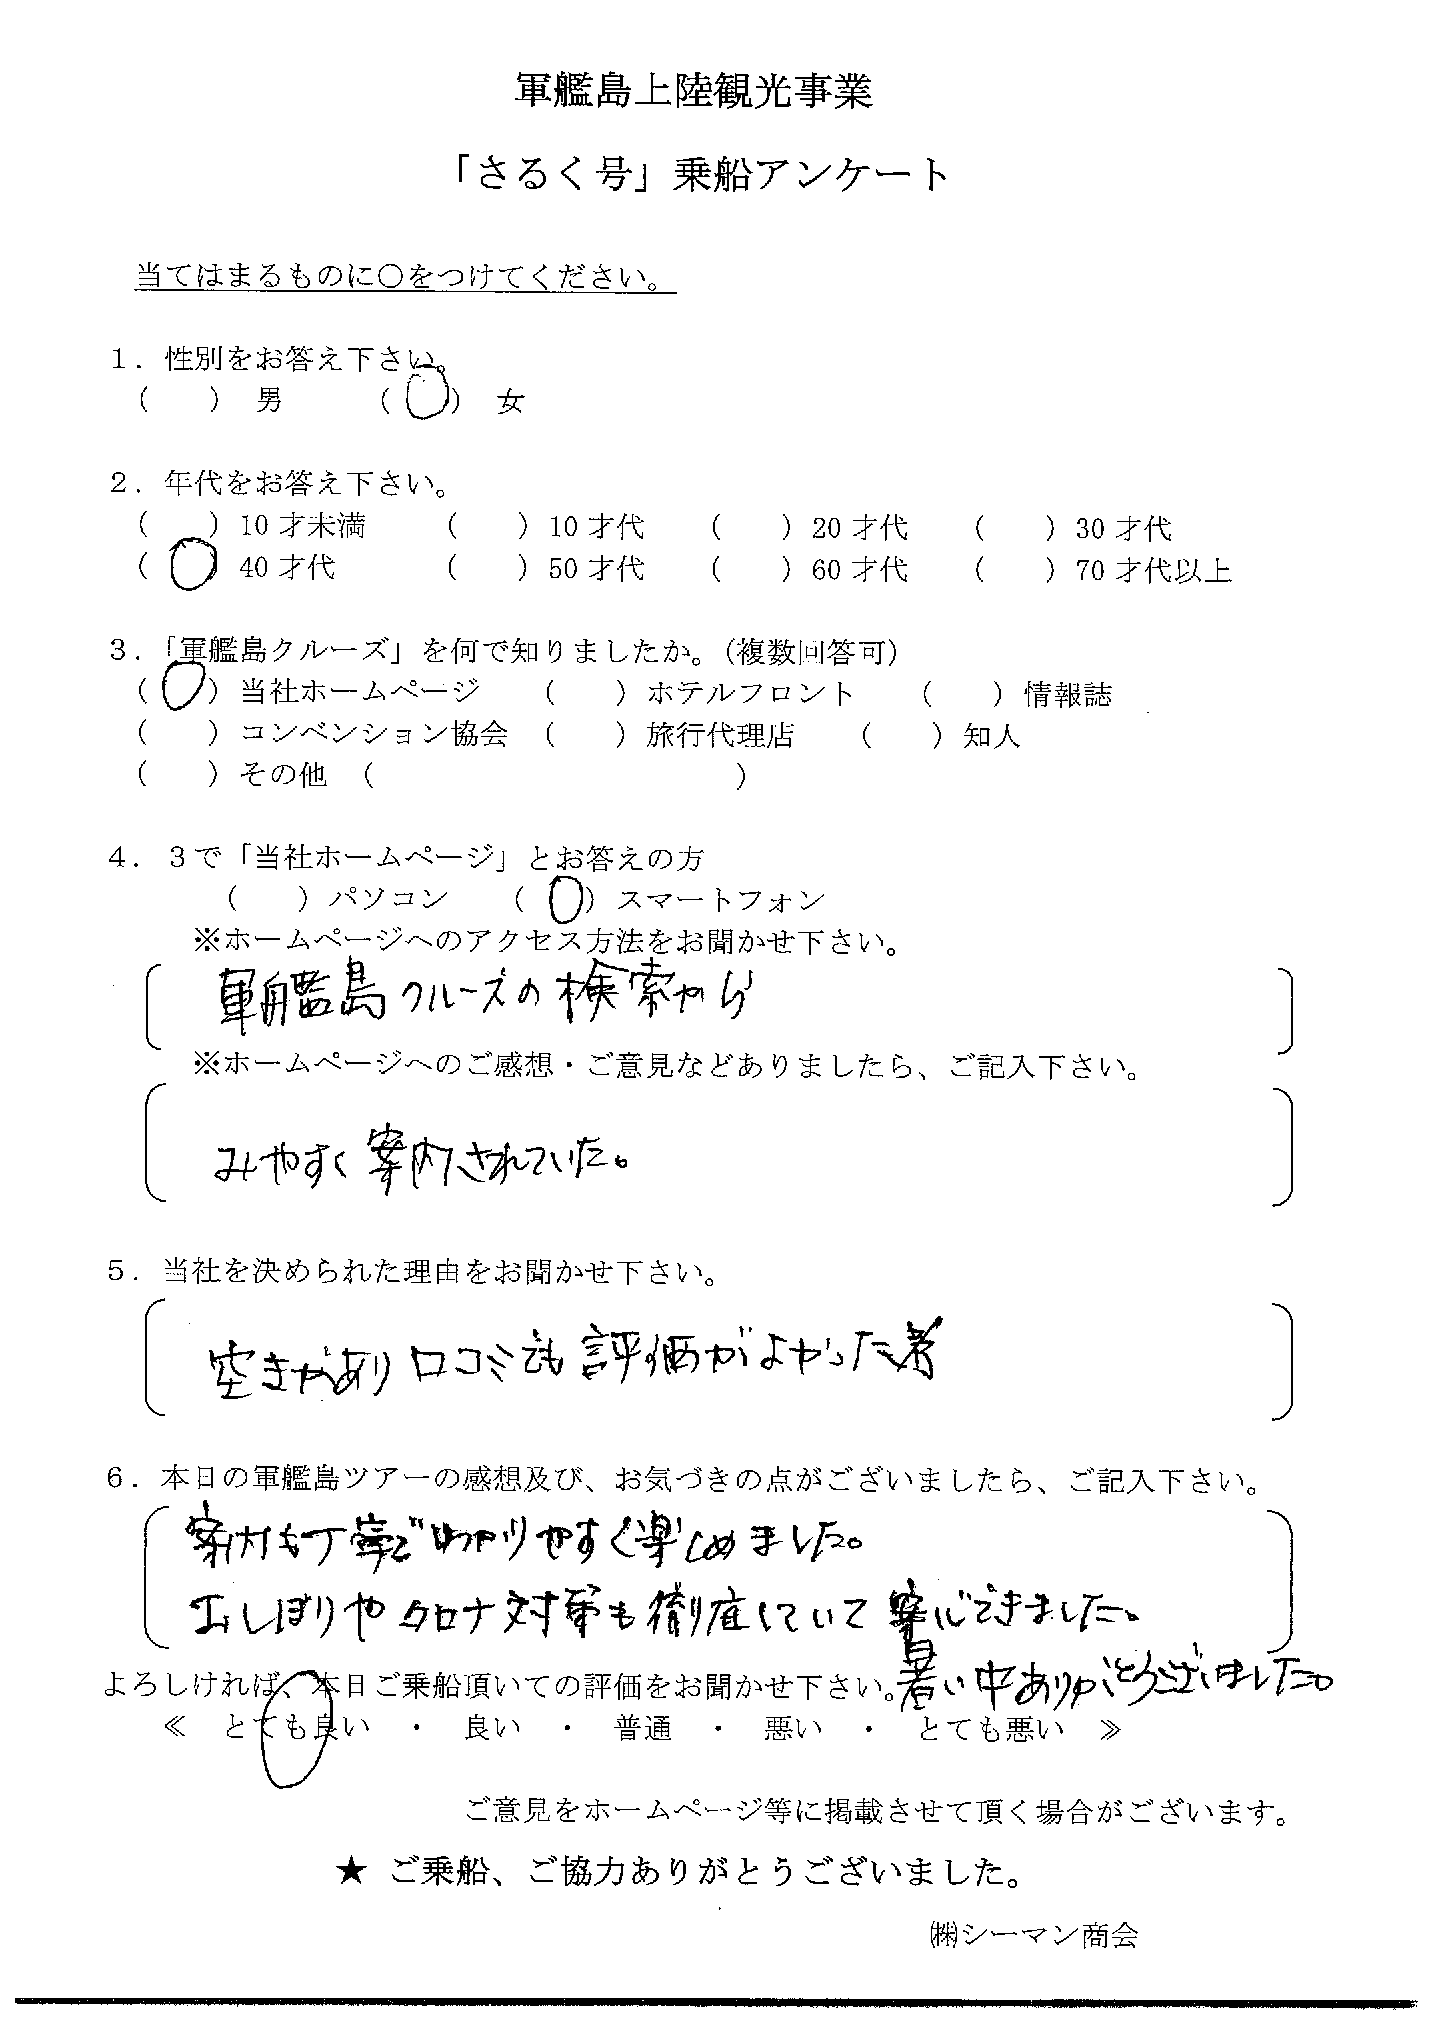 軍艦島上陸観光事業
「さるく号」乗船アンケート
当てはまるものに○をつけてください。
1．性別をお答え下さい。
（　　）男　　（○）女
2．年代をお答え下さい。
（　　）10才未満　　（　　）10才代　　（　　）20才代　　（　　）30才代
（○　　40才代　　（　　）50才代　　（　　）60才代　　（　　）70才代以上
3．「軍艦島クルーズ」を何で知りましたか。（複数回答可）
（○）当社ホームページ　　（　　）ホテルフロント　　（　　）情報誌
（　　）コンベンション協会　（　　）旅行代理店　　（　　）知人
（　　）その他　（　　　　　　　　　　）
4．3で「当社ホームページ」とお答えの方
（　　）パソコン　　（○）スマートフォン
※ホームページへのアクセス方法をお聞かせ下さい。
軍艦島クルーズの検索から
※ホームページへのご感想・ご意見などありましたら、ご記入下さい。
みやすく案内されていた。
5．当社を決められた理由をお聞かせ下さい。
空きがあり口コミでも評価がよかった為
6．本日の軍艦島ツアーの感想及び、お気づきの点がございましたら、ご記入下さい。
案内も丁寧でわかりやすく楽しめました。
おしぼりやクロナ対策も徹底していて安心できました。
暑い中ありがとうございました。
よろしければ、本日ご乗船頂いての評価をお聞かせ下さい。
≪　とても良い　・　良い　・　普通　・　悪い　・　とても悪い　≫
ご意見をホームページ等に掲載させて頂く場合がございます。
★ ご乗船、ご協力ありがとうございました。
㈱シーマン商会